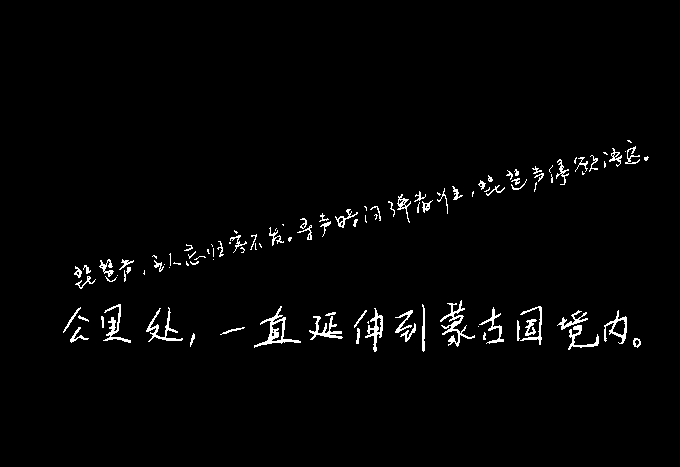 琵琶声,主人忘归客不发。寻声暗问弹者谁,琵琶声停欲语迟。
公里处,一直延伸到蒙古国境内。